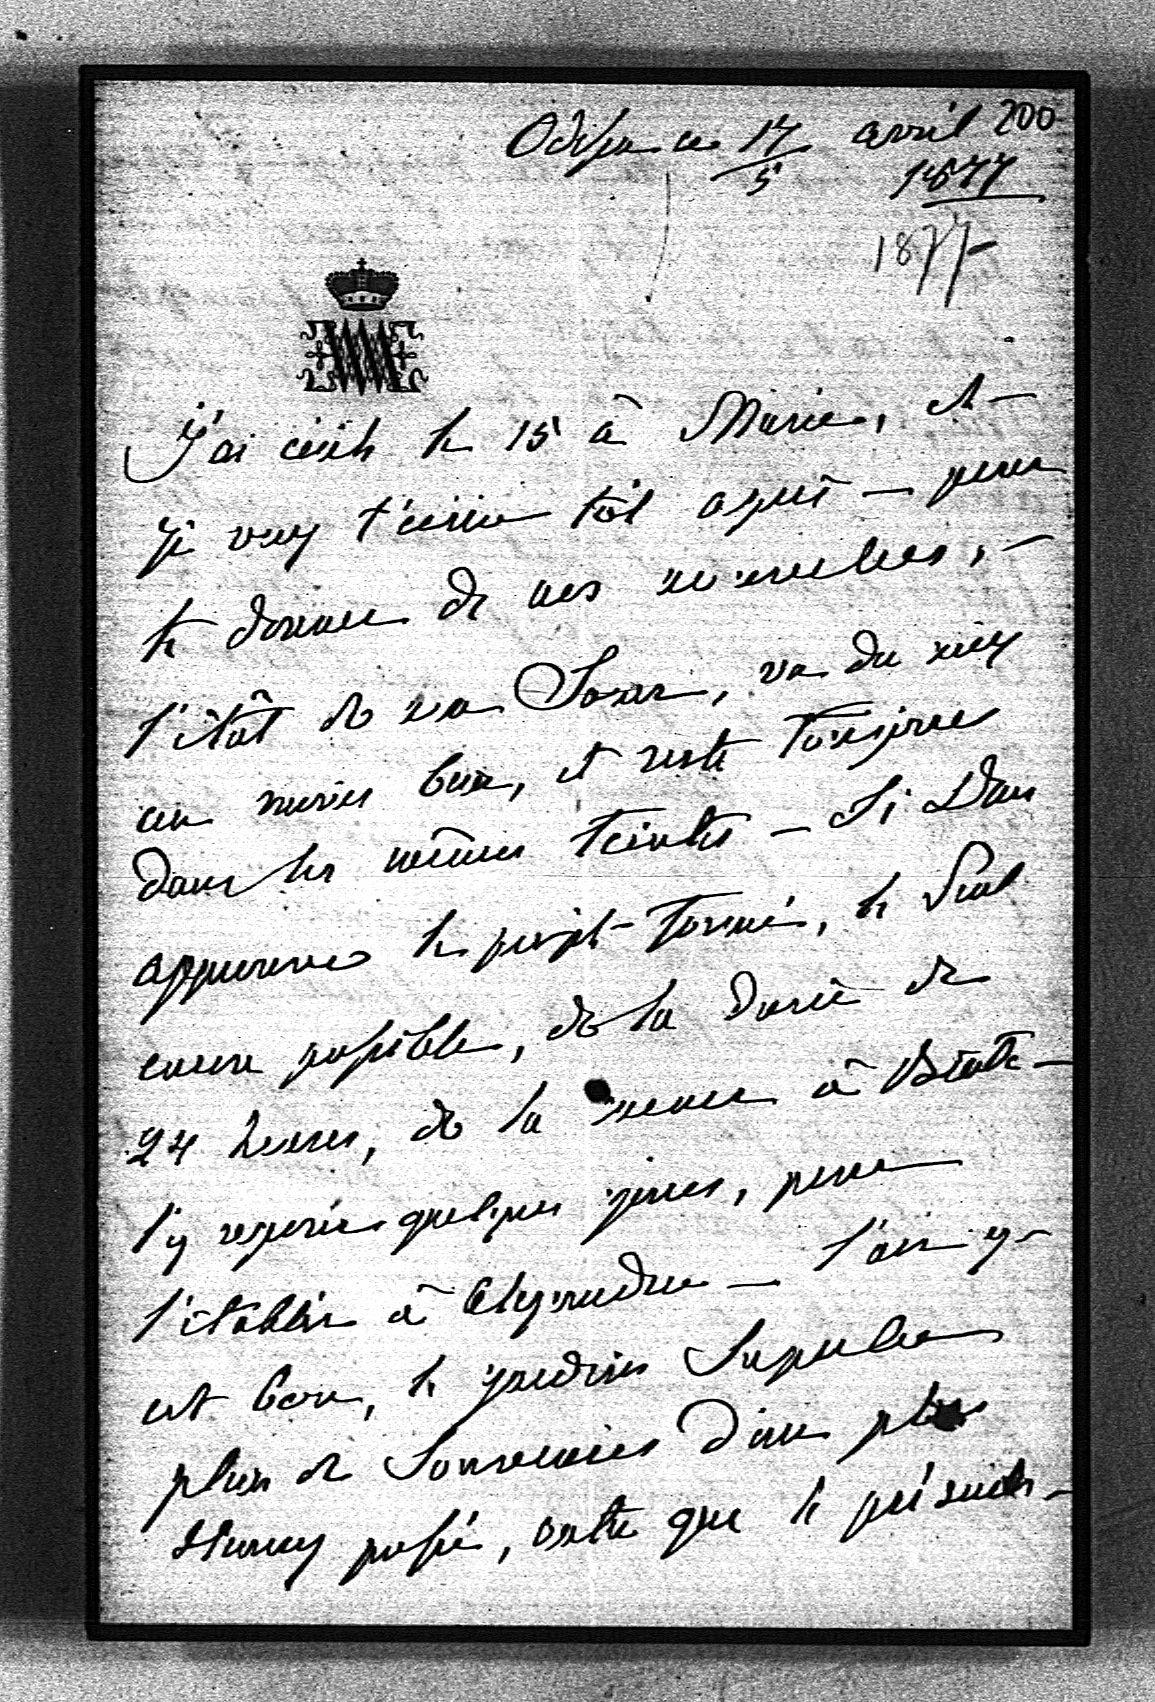 200
Odessa ce 17/5 avril
1877
1877
J'ai écrit le 15 à Marie, et
je veux t'écrire tôt après — pour
te donner de nos nouvelles, —
l'état de ma Soeur, va du mieux
au moins bien, et reste toujours
dans les mêmes teintes — Si Dieu
approuve le projet formé, le Seul
encore possible, de la durée de
24 heures, de la mener à
l'y reposer quelques jours, pour
l'établir à — l'air y
est bon, le jardin Superbe
plein de Souvenirs d'un plus
heureux passé, outre que le présent —